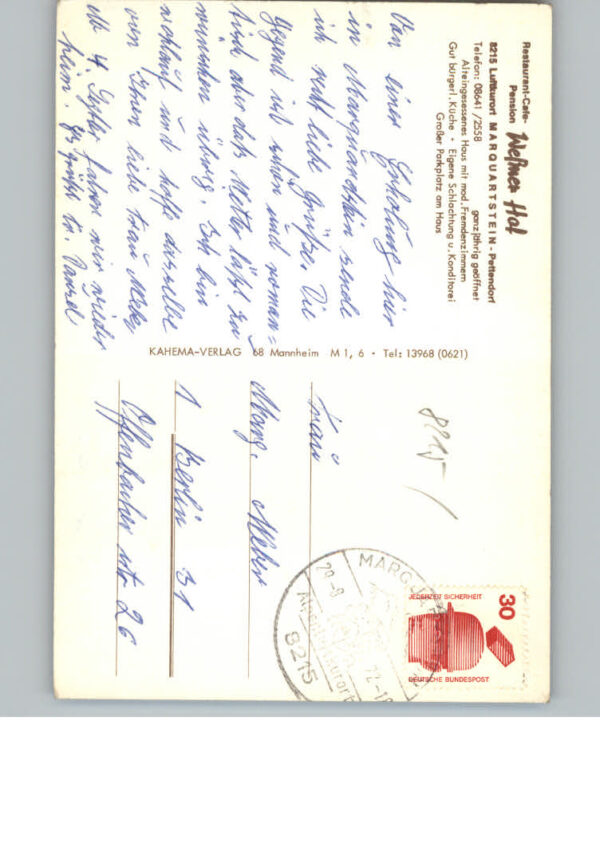 Restaurant-Cafe-
Pension Weßner Hof
8215 Luftkurort MARQUARTSTEIN - Pettendorf
Telefon: 08641/2558 ganzjährig geöffnet
Alteingesessenes Haus mit mod. Fremdenzimmern
Gut bürgerl. Küche • Eigene Schlachtung u. Konditorei
Großer Parkplatz am Haus
Von einer Erholung hier
in Marquartstein sende
ich recht liebe Grüße. Die
Gegend ist schön und roman=
tisch aber das Wetter läßt zu
wünschen übrig. Ich bin
wohlauf und hoffe dasselbe
von Ihnen liebe Frau
fahren wir wieder
heim. Es grüßt
KAHEMA-VERLAG 68 Mannheim M 1, 6 • Tel: 13968 (0621)
8215
Frau
Marg.
1 Berlin 31
Offenbacher str 26
30
JEDERZEIT SICHERHEIT
DEUTSCHE BUNDESPOST
8215